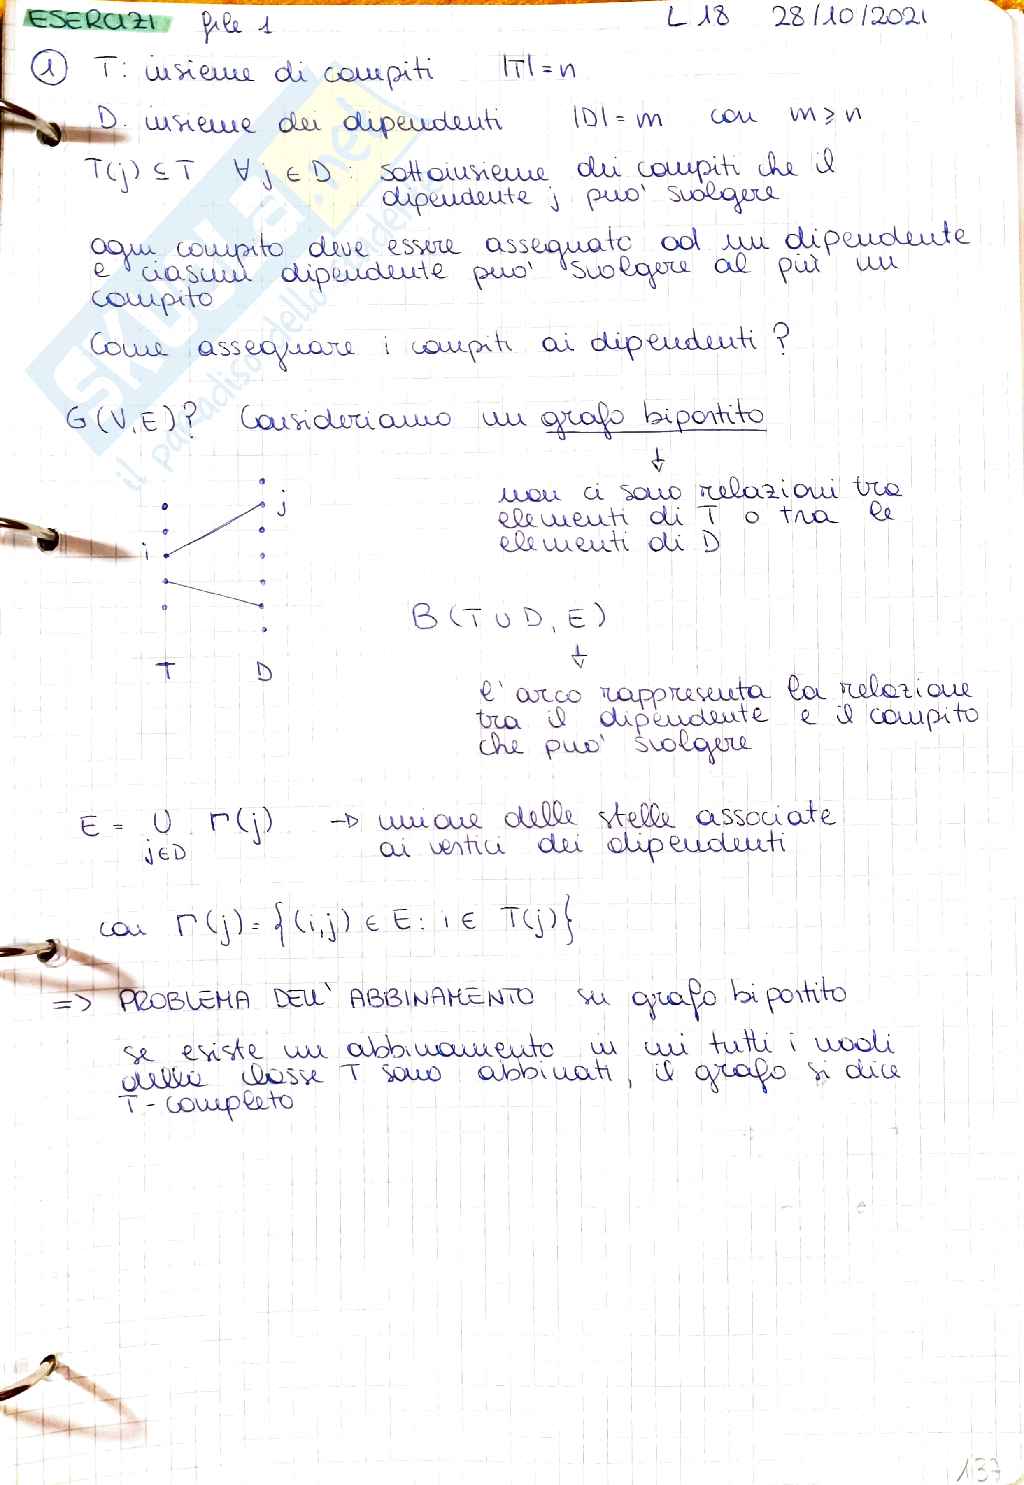 ESERCIZI file 1 L 18 28/10/2021
① T: insieme di compiti |T| = n
D: insieme dei dipendenti |D| = m con m ≥ n
T(j) ⊆ T ∀ j ∈ D : sottoinsieme dei compiti che il
dipendente j puo' svolgere
ogni compito deve essere assegnato ad un dipendente
e ciascun dipendente puo' svolgere al più un
compito
Come assegnare i compiti ai dipendenti?
G(V,E)? Consideriamo un grafo bipartito
non ci sono relazioni tra
elementi di T o tra le
elementi di D
j
i
T D
B(T ∪ D, E)
l'arco rappresenta la relazione
tra il dipendente e il compito
che puo' svolgere
E = ∪ Γ(j) → unione delle stelle associate
j∈D ai vertici dei dipendenti
con Γ(j) = {(i,j) ∈ E : i ∈ T(j)}
=> PROBLEMA DELL'ABBINAMENTO su grafo bipartito
se esiste un abbinamento in cui tutti i nodi
della classe T sono abbinati, il grafo si dice
T-completo
137
SKUOLA.net
il paradiso dello studente